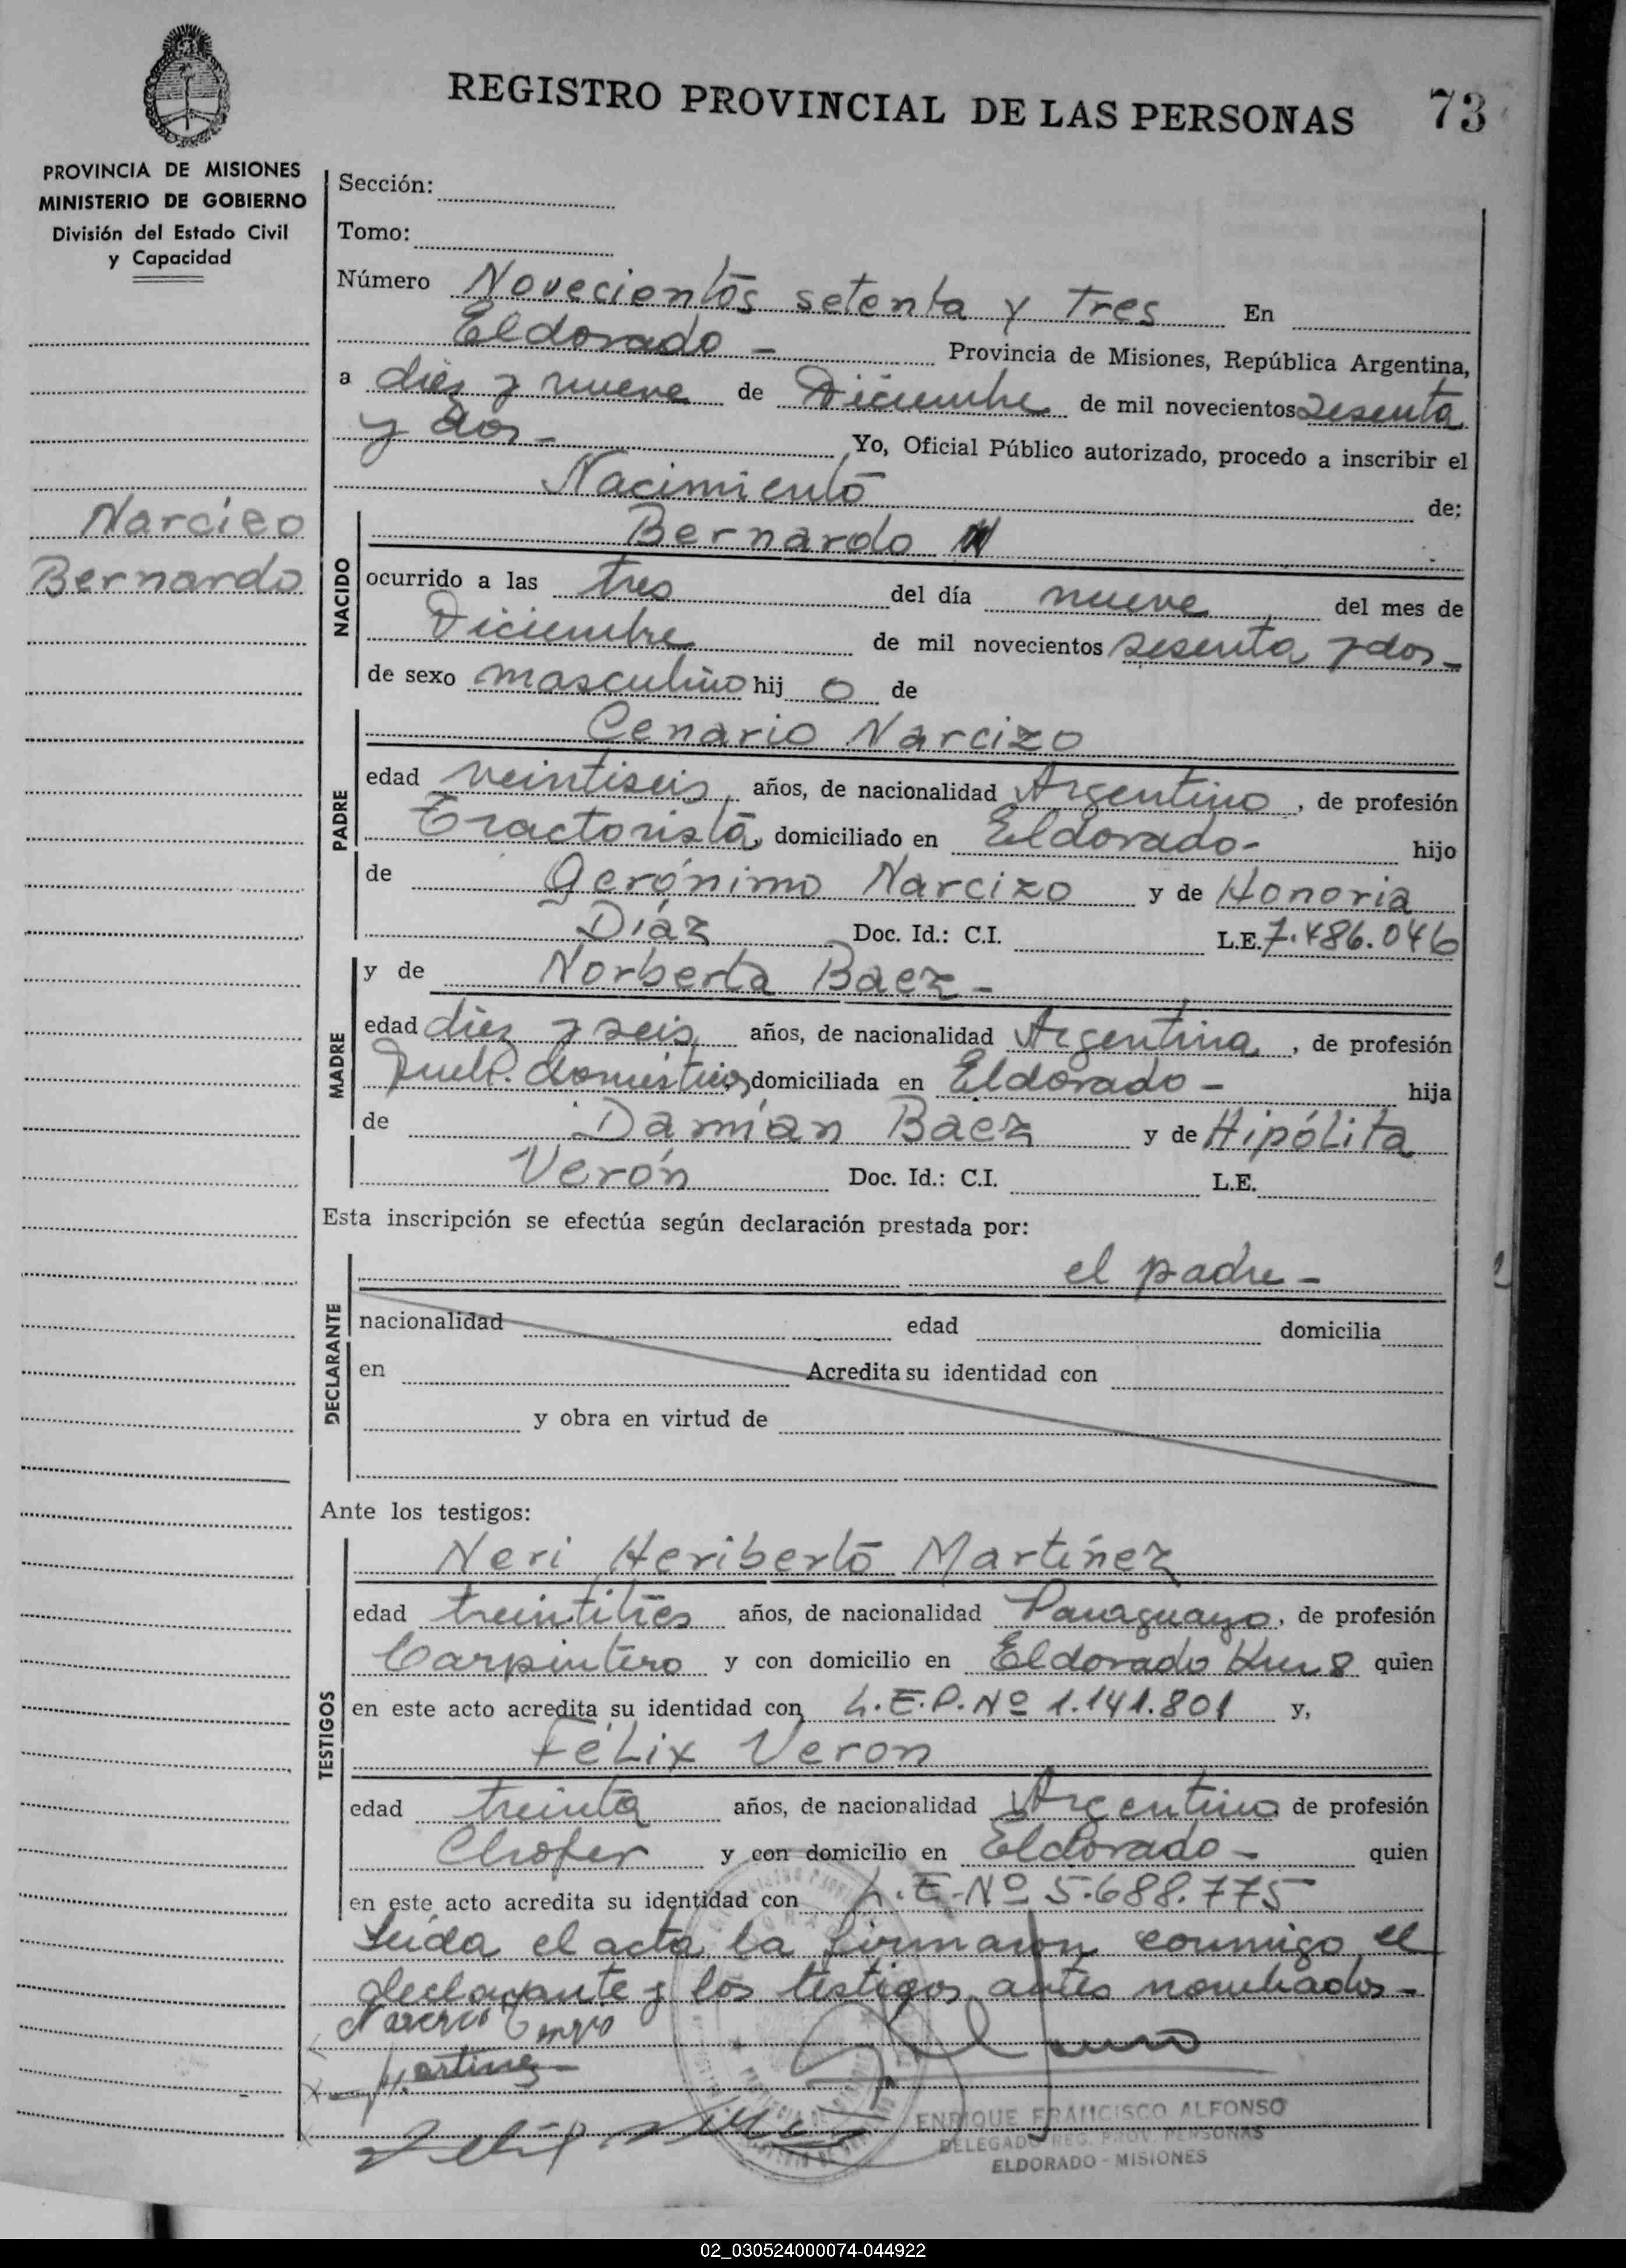 REGISTRO PROVINCIAL DE LAS PERSONAS 73
PROVINCIA DE MISIONES
MINISTERIO DE GOBIERNO
División del Estado Civil
y Capacidad
Narcizo
Bernardo
Sección:
Tomo:
Número Novecientos setenta y Tres En
Eldorado - Provincia de Misiones, República Argentina,
a diez y nueve de Diciembre de mil novecientos sesenta
y dos - Yo, Oficial Público autorizado, procedo a inscribir el
Nacimiento de:
NACIDO
Bernardo
ocurrido a las tres del día nueve del mes de
Diciembre de mil novecientos sesenta y dos -
de sexo masculino hij o de
PADRE
Cenario Narcizo
edad veintiseis años, de nacionalidad Argentino, de profesión
Tractorista, domiciliado en Eldorado - hijo
de Gerónimo Narcizo y de Honoria
Díaz Doc. Id.: C.I. L.E. 7.486.046
MADRE
y de Norberta Baez -
edad diez y seis años, de nacionalidad Argentina, de profesión
domiciliada en Eldorado - hija
de Damián Baez y de Hipólita
Verón Doc. Id.: C.I. L.E.
Esta inscripción se efectúa según declaración prestada por:
DECLARANTE
el padre -
nacionalidad edad domicilia
en Acredita su identidad con
y obra en virtud de
Ante los testigos:
TESTIGOS
Neri Heriberto Martínez
edad treintitres años, de nacionalidad Paraguayo, de profesión
Carpintero y con domicilio en Eldorado Km 8 quien
en este acto acredita su identidad con L.E.P. Nº 1.141.801 y,
Félix Veron
edad treinta años, de nacionalidad Argentino de profesión
Chofer y con domicilio en Eldorado - quien
en este acto acredita su identidad con L.E. Nº 5.688.775
Leida el acta la firmaron conmigo el
declarante y los testigos antes nombrados -
Martinez
ENRIQUE FRANCISCO ALFONSO
DELEGADO REG. PROV. PERSONAS
ELDORADO - MISIONES
02_030524000074-044922